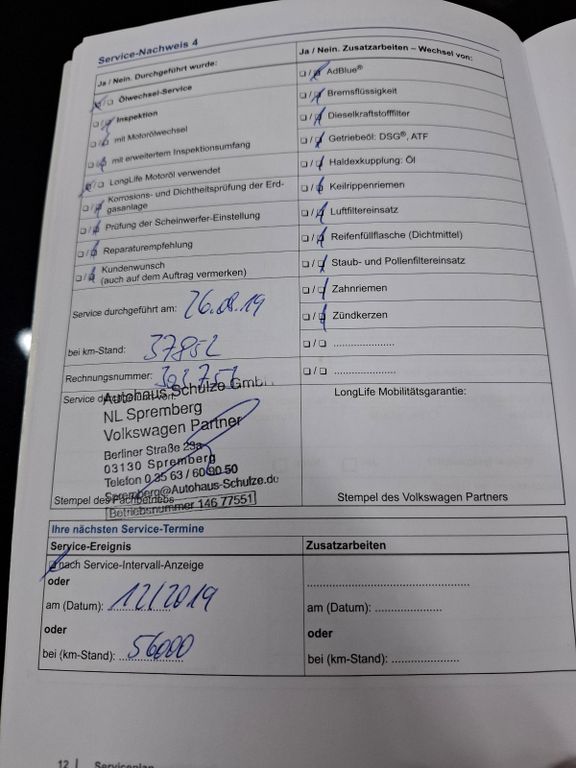 Service-Nachweis 4
Ja / Nein. Durchgeführt wurde:
❏/❏ Ölwechsel-Service
❏/❏ Inspektion
❏/❏ mit Motorölwechsel
❏/❏ mit erweitertem Inspektionsumfang
❏/❏ LongLife Motoröl verwendet
❏/❏ Korrosions- und Dichtheitsprüfung der Erd-
gasanlage
❏/❏ Prüfung der Scheinwerfer-Einstellung
❏/❏ Reparaturempfehlung
❏/❏ Kundenwunsch
(auch auf dem Auftrag vermerken)
Service durchgeführt am: 26.08.19
bei km-Stand: 37852
Rechnungsnummer:
Service
Autohaus Schulze GmbH
NL Spremberg
Volkswagen Partner
Berliner Straße 29a
03130 Spremberg
Telefon 0 35 63 / 60 90 50
Spremberg@Autohaus-Schulze.de
Stempel des Fachbetriebs
Betriebsnummer 146 77551
Ja / Nein. Zusatzarbeiten – Wechsel von:
❏/❏ AdBlue®
❏/❏ Bremsflüssigkeit
❏/❏ Dieselkraftstofffilter
❏/❏ Getriebeöl: DSG®, ATF
❏/❏ Haldexkupplung: Öl
❏/❏ Keilrippenriemen
❏/❏ Luftfiltereinsatz
❏/❏ Reifenfüllflasche (Dichtmittel)
❏/❏ Staub- und Pollenfiltereinsatz
❏/❏ Zahnriemen
❏/❏ Zündkerzen
❏/❏ ......................
❏/❏ ......................
LongLife Mobilitätsgarantie:
Stempel des Volkswagen Partners
Ihre nächsten Service-Termine
Service-Ereignis
❏ nach Service-Intervall-Anzeige
oder
am (Datum): 12/2019
oder
bei (km-Stand): 56000
Zusatzarbeiten
..........................................
am (Datum): ......................
oder
bei (km-Stand): ......................
12 | Serviceplan